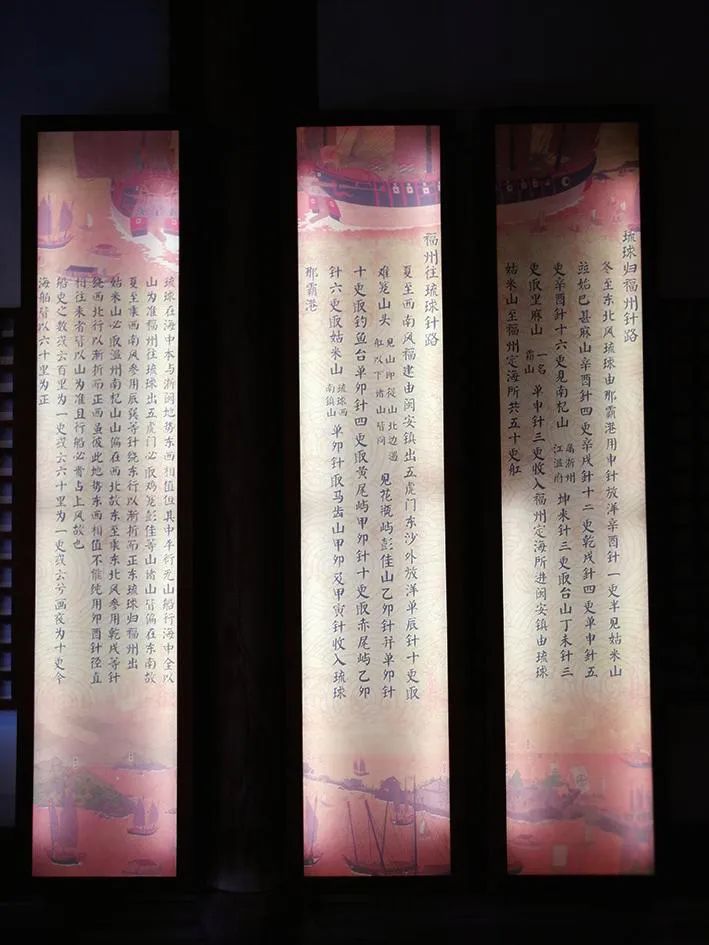 琉球归福州针路
冬至东北风琉球由那霸港用申针放洋辛酉针一更半见姑米山
竝姑巴甚麻山辛酉针四更辛戌针十二更乾戌针四更单申针五
更辛酉针十六更见南杞山 属浙州江温府 坤未针三更取台山丁未针三
更取里麻山 一名霜山 单申针三更收入福州定海所进闽安镇由琉球
姑米山至福州定海所共五十更舡
福州往琉球针路
夏至西南风福建由闽安镇出五虎门东沙外放洋单辰针十更取
难笼山头 见山即從山北边過舡以下诸山皆同 见花瓶屿彭佳山乙卯针并单卯针
十更取钓鱼台单卯针四更取黄尾屿甲卯针十更取赤尾屿乙卯
针六更取姑米山 琉球西南镇山 单卯针取马齿山甲卯及甲寅针收入琉球
那霸港
琉球在海中本与浙闽地势东西相值但其中平衍无山船行海中全以
山为准福州往琉球出五虎门必取鸡笼彭佳等山诸山皆偏在东南故
夏至乘西南风参用辰巽等针绕东行以渐折而正东琉球归福州出
姑米山必取温州南杞山山偏在西北故东至乘东北风参用乾戌等针
绕西北行以渐折而正西虽彼此地势东西相值不能纯用卯酉针径直
相往来者皆以山为准且行船必肯占上风故也
船吏之数或云百里为一更或云六十里为一更或云兮画夜为十更今
海舶皆以六十里为正